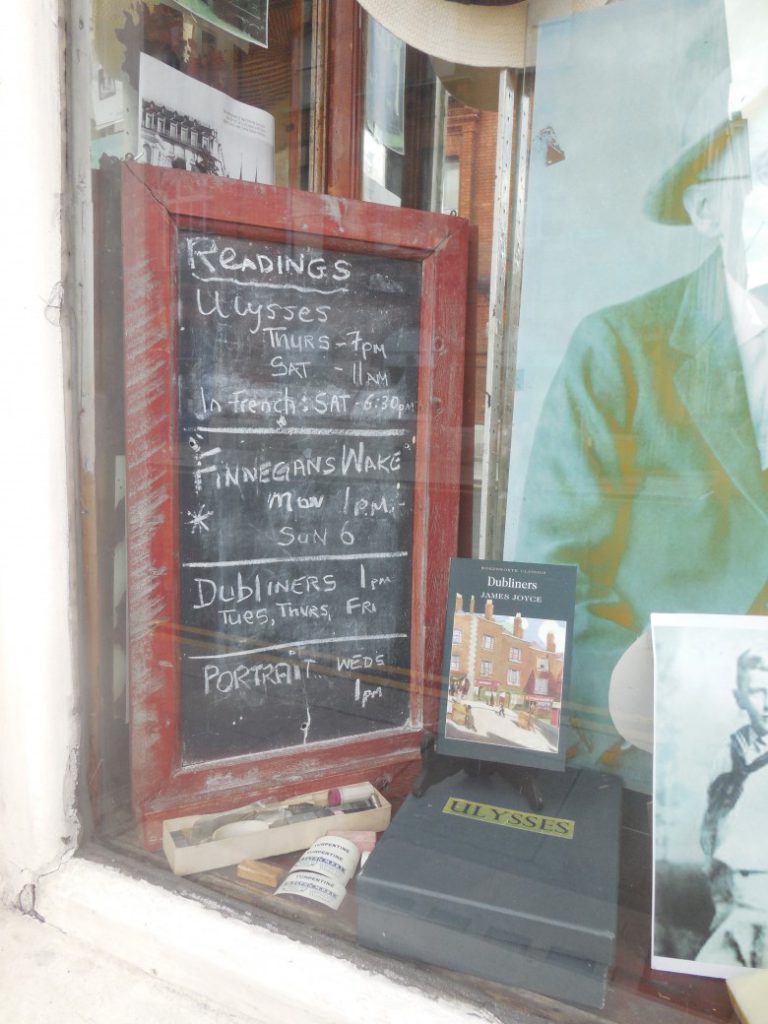 Readings
Ulysses
Thurs - 7pm
Sat - 11am
In French: Sat - 6:30pm
Finnegans Wake
Mon 1pm
Sun 6
Dubliners 1pm
Tues, Thurs, Fri
Portrait Weds
1pm
Dubliners
JAMES JOYCE
ULYSSES
TURPENTINE
TURPENTINE